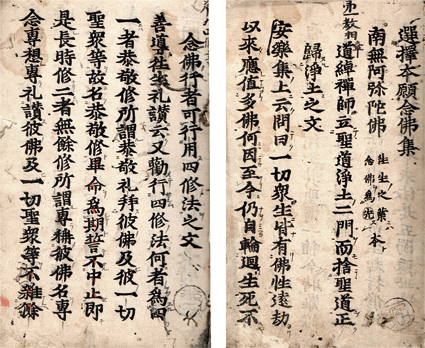 選擇本願念佛集
南無阿弥陀佛 往生之業念佛為先 本
道綽禪師立聖道淨土二門而捨聖道正
歸淨土之文
安樂集上云問曰一切衆生皆有佛性遠劫
以來應值多佛何因至今仍自輪迴生死不
念佛行者可行用四修法之文
善導往生礼讚云又勸行四修法何者為四
一者恭敬修所謂恭敬礼拜彼佛及彼一切
聖衆等故名恭敬修畢命為期誓不中止即
是長時修二者無餘修所謂專稱彼佛名專
念專想專礼讚彼佛及一切聖衆等不雜餘